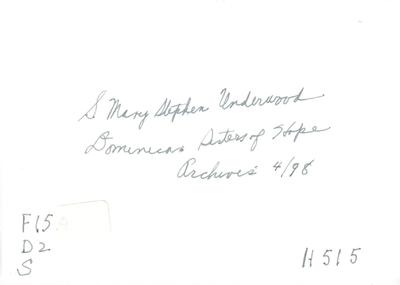 S Mary Stephen Underwood
Dominican Sisters of Hope
Archives 4/98
F15
D2
S
H515